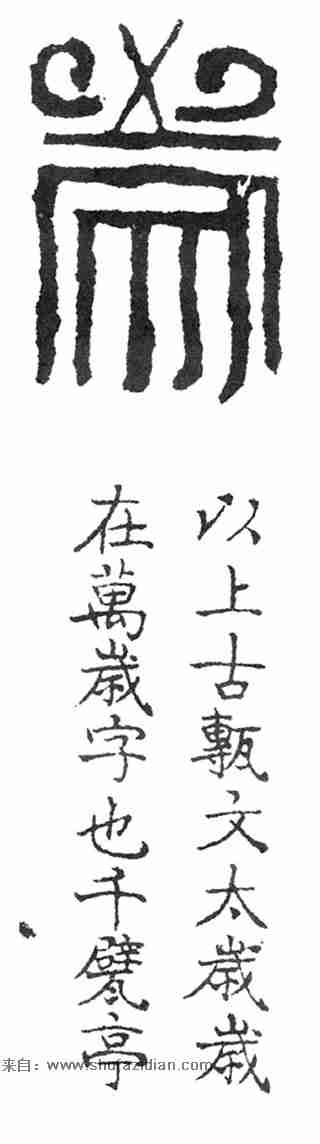 以上古甎文太嵗嵗
在萬嵗字也千甓亭
来自：www.shufazidian.com